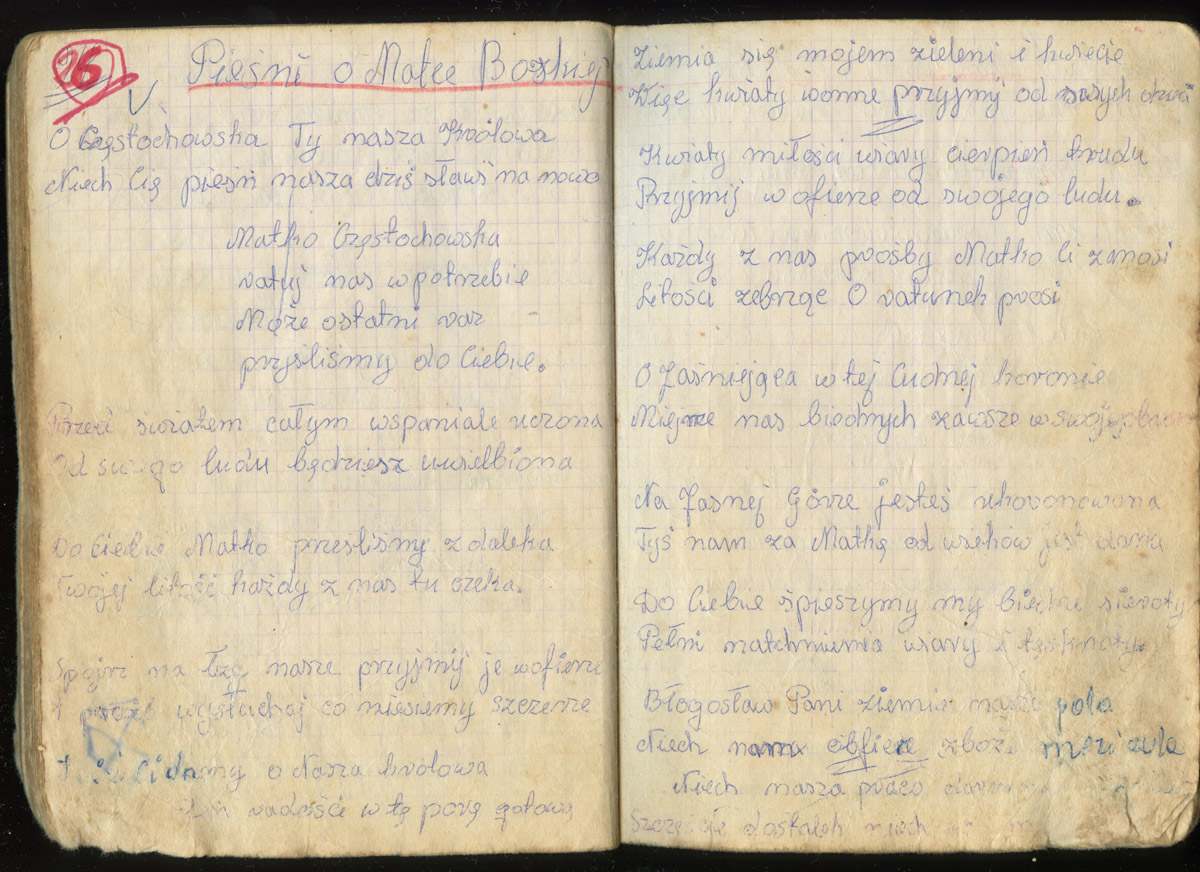 26
Pieśni o Matce Boskiej
O Częstochowska Ty nasza Królowa
Niech Cię pieśń nasza dziś sławi na nowo
Matko Częstochowska
ratuj nas w potrzebie
Może ostatni raz
pryśliśmy do Ciebie.
Przed światem całym wspaniale uczona
Od swego ludu będziesz uwielbiona
Do Ciebie Matko presliśmy z daleka
Twojej litość każdy z nas tu czeka.
Spojrz na łzę nasze przyjmij je wofierze
wysłuchaj co niesiemy szczerze
my o Nasza królowa
radości w tę porę gotowa
Ziemia się mojem zieleni i kwiecie
Więc kwiaty wonne przyjmij od swych
Kwiaty miłości wiary cierpień trudu
Przyjmij w ofierze od swojego ludu.
Każdy z nas prośby Matko Ci zanosi
Litości żebrząc O ratunek prosi
O Jaśniejąca w tej Cudnej koronie
Miejrze nas biednych zawsze w swoj
Na Jasnej Górze jesteś ukoronowana
Tyś nam za Matkę od wieków jest dana
Do Ciebie śpieszymy my biedne sieroty
Pełni natchnienia wiary i tęsknoty
Błogosław Pani ziemie nasze pola
Niech nam obficie zboże
Niech nasza praca
Szczęście dostatek niech